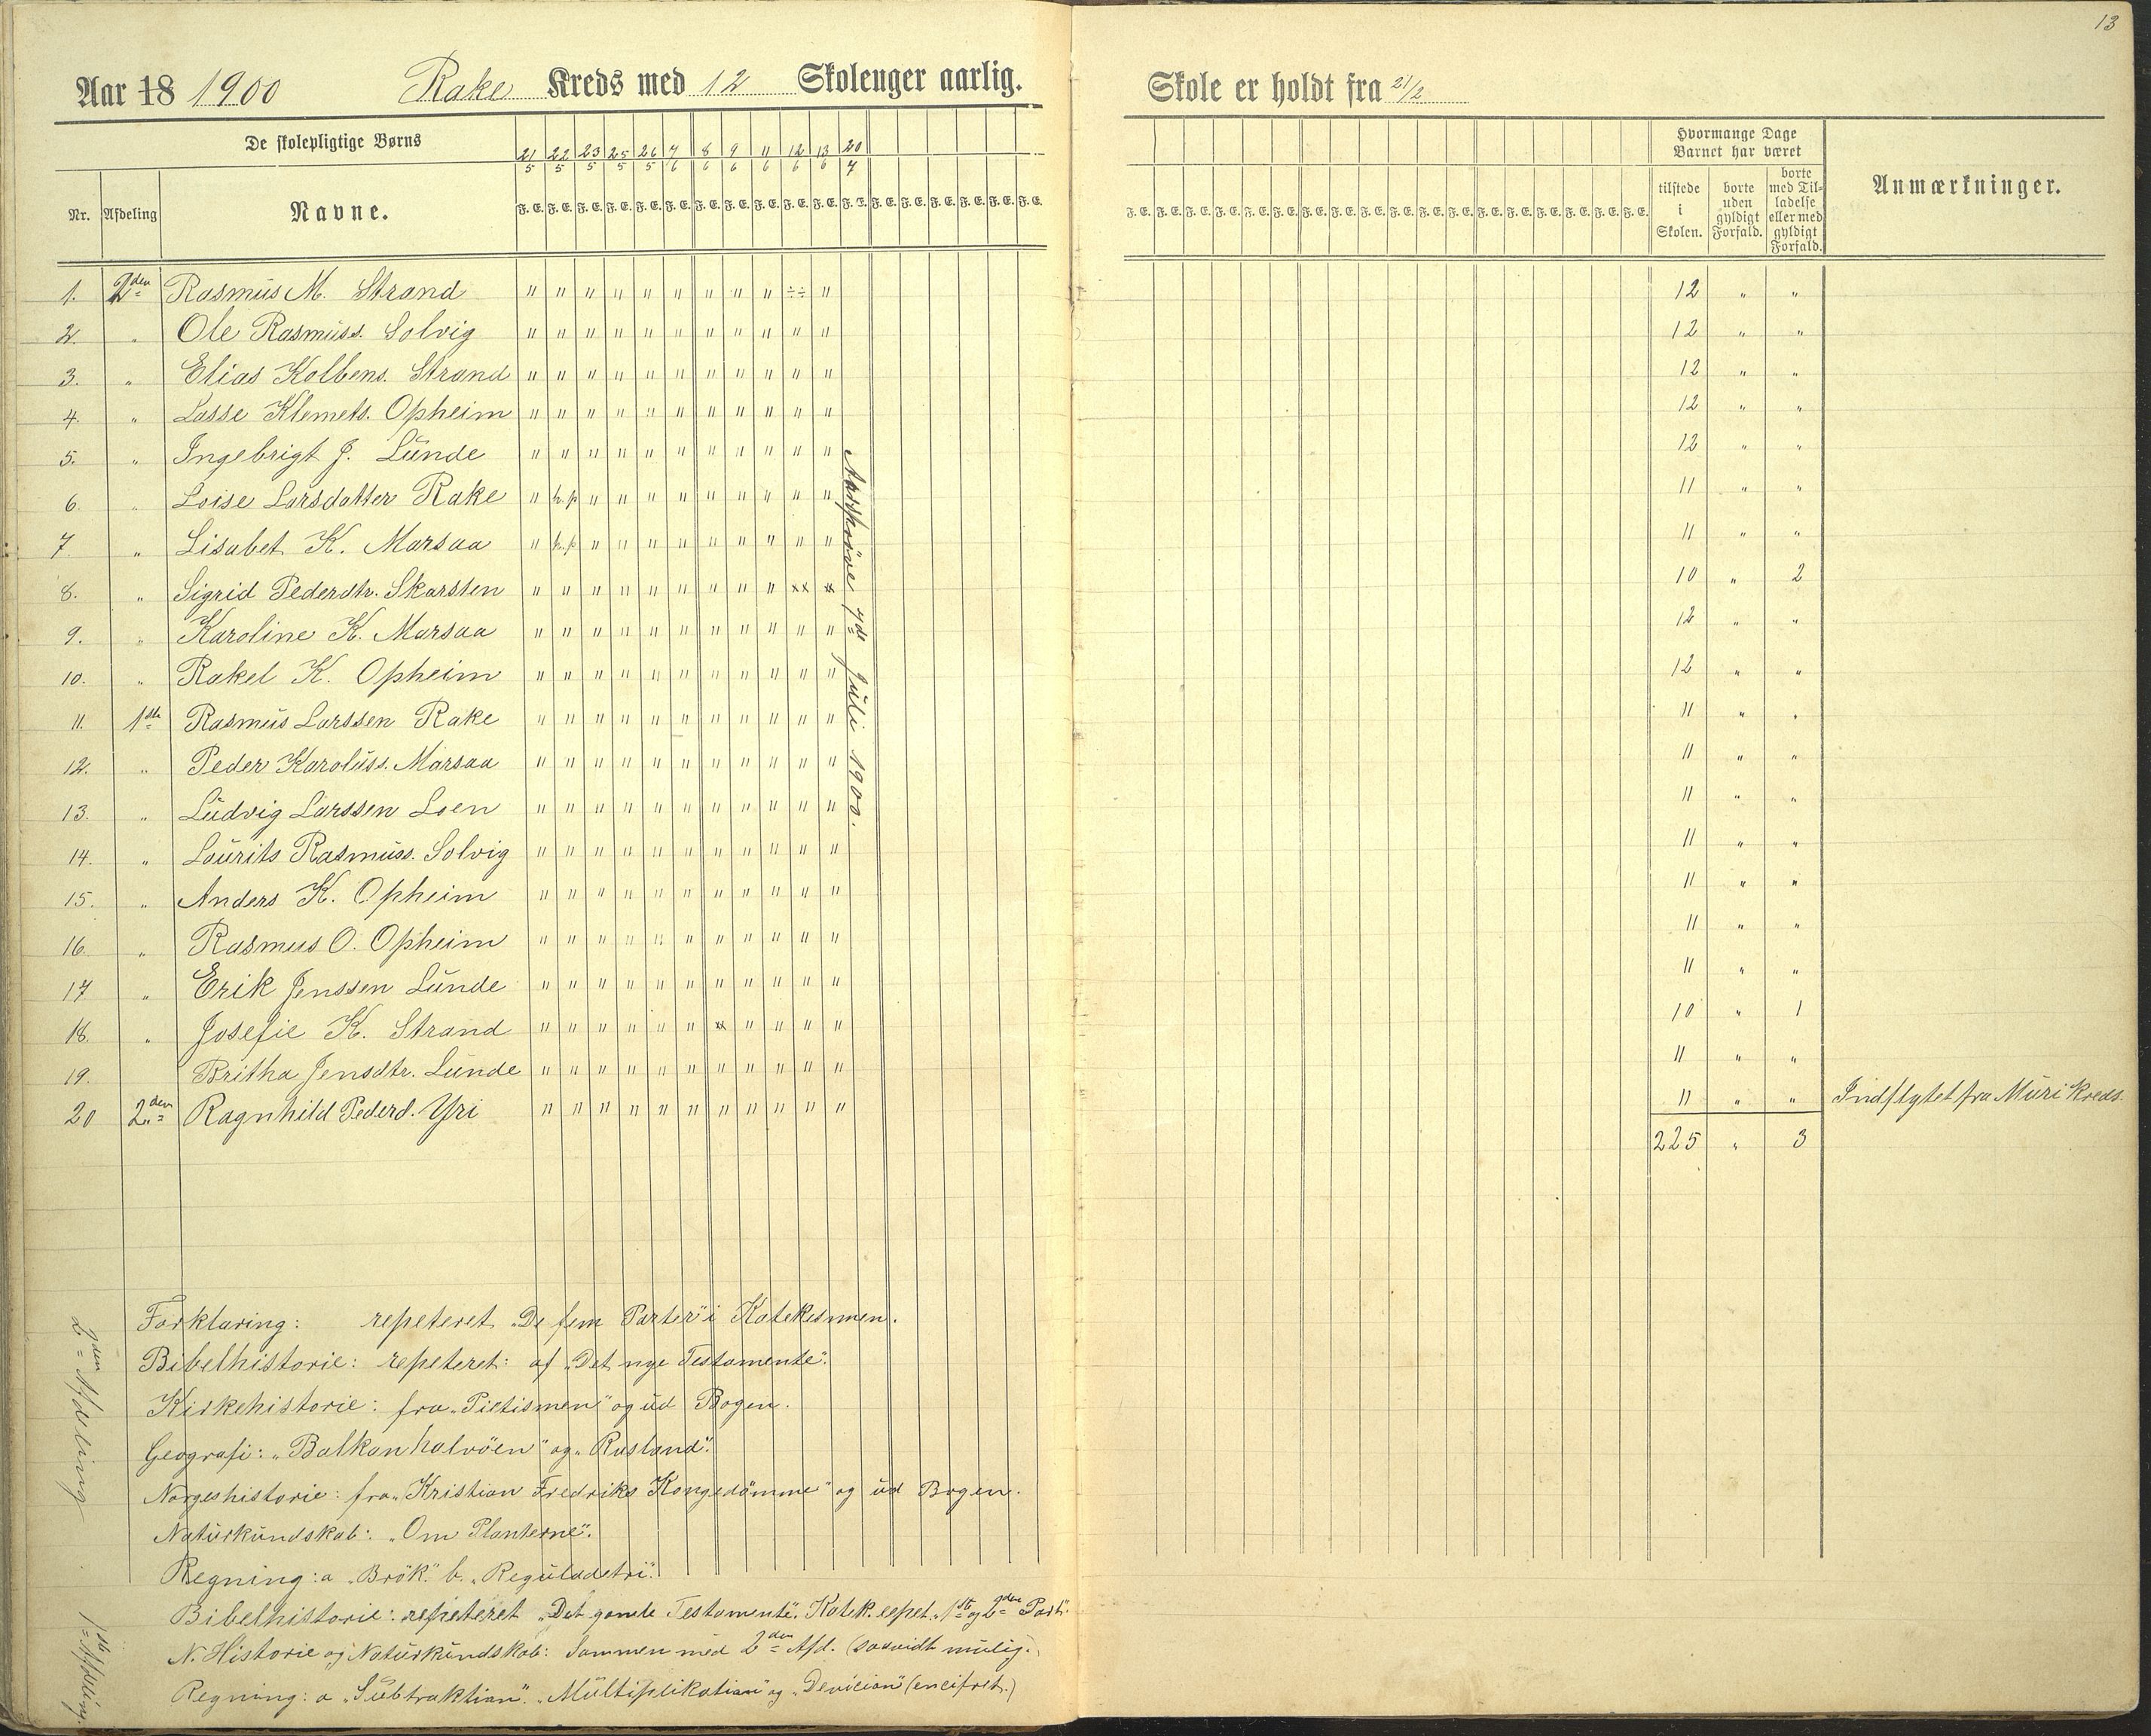 13
Aar 18 1900 Rake Kreds med 12 Skolenger aarlig.
Skole er holdt fra 21/2
De skolepligtige Børns
21/5 22/5 23/5 25/5 26/5 7/6 8/6 9/6 11/6 12/6 13/6 20/7
Hvormange Dage Barnet har været
Nr. Afdeling Navne.
F. E. F. E. F. E. F. E. F. E. F. E. F. E. F. E. F. E. F. E. F. E. F. E. F. E. F. E. F. E. F. E. F. E. F. E.
F. E. F. E. F. E. F. E. F. E. F. E. F. E. F. E. F. E. F. E. F. E. F. E. F. E. F. E. F. E. F. E. F. E. F. E.
tilstede i Skolen.
borte uden gyldigt Forfald.
borte med Tilladelse eller med gyldigt Forfald.
Anmærkninger.
1. 2den Rasmus M. Strand " " " " " " " " " ÷÷ " 12 " "
2. " Ole Rasmuss. Solvig " " " " " " " " " " " 12 " "
3. " Elias Kolbens. Strand " " " " " " " " " " " 12 " "
4. " Lasse Klemets. Opheim " " " " " " " " " " " 12 " "
5. " Ingebrigt J. Lunde " " " " " " " " " " " 12 " "
6. " Loise Larsdatter Rake " h.p " " " " " " " " " 11 " "
7. " Lisabet K. Marsaa " h.p " " " " " " " " " 11 " "
8. " Sigrid Pederdtr. Skarsten " " " " " " " " " xx x 10 " 2
9. " Karoline K. Marsaa " " " " " " " " " " " 12 " "
10. " Rakel K. Opheim " " " " " " " " " " " 12 " "
11. 1ste Rasmus Larssen Rake " " " " " " " " " " " 11 " "
12. " Peder Karoluss. Marsaa " " " " " " " " " " " 11 " "
13. " Ludvig Larssen Loen " " " " " " " " " " " 11 " "
14. " Laurits Rasmuss. Solvig " " " " " " " " " " " 11 " "
15. " Anders K. Opheim " " " " " " " " " " " 11 " "
16. " Rasmus O. Opheim " " " " " " " " " " " 11 " "
17 " Erik Jenssen Lunde " " " " " " " " " " " 11 " "
18. " Josefie K. Strand " " " " " " x " " " " 10 " 1
19. Britha Jensdtr. Lunde " " " " " " " " " " " 11 " "
20 2den Ragnhild Pederd. Yri " " " " " " " " " " " 11 " " Indflytet fra Muri Kreds.
225 " 3
Aarsprøve 7de Juli 1900.
2den Afdeling
Forklaring: repeteret „De fem Parter" i Katekesmen.
Bibelhistorie: repeteret: af „Det nye Testamente".
Kirkehistorie: fra „Pietismen" og ud Bogen.
Geografi: „Balkanhalvöen" og „Rusland".
Norgeshistorie: fra „Kristian Fredriks Kongedömme" og ud Bogen.
Naturkundskab: „Om Planterne".
Regning: a „Brök". b. „Reguladetri".
1ste Afdeling.
Bibelhistorie: repeteret „Det gamle Testamente". Katek. repet. „1ste og 2den Part".
N. Historie og Naturkundskab: Sammen med 2den Afd. (saavidt mulig.)
Regning: a „Subtraktion". „Multiplikation" og „Devicion" (encifret.)